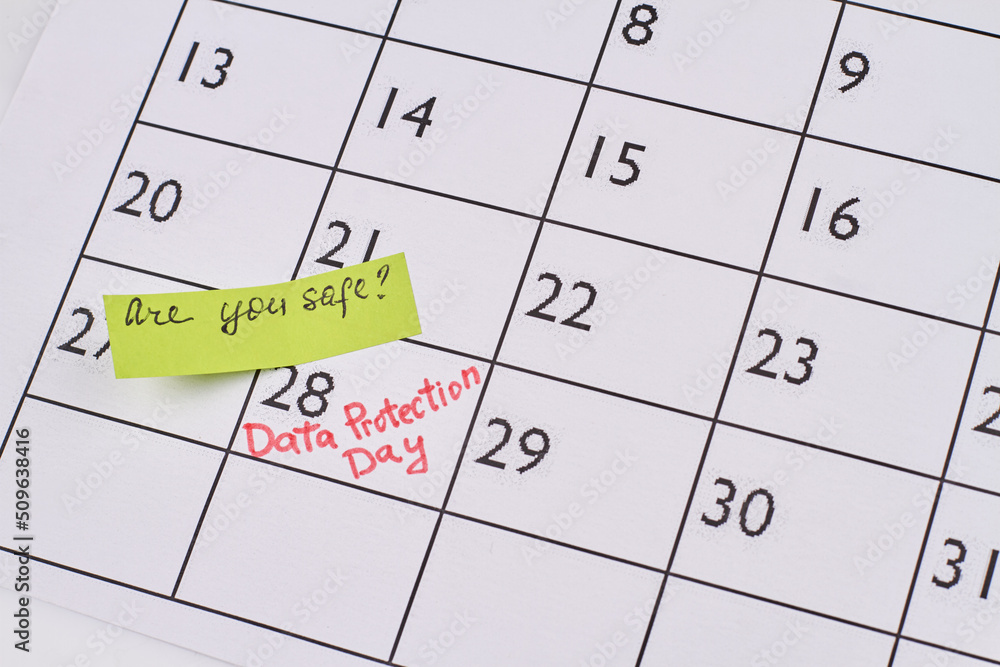 8
9
13
14
15
16
20
21
22
23
Are you safe?
27
28
29
30
31
Data Protection
Day
Adobe Stock | #509638416